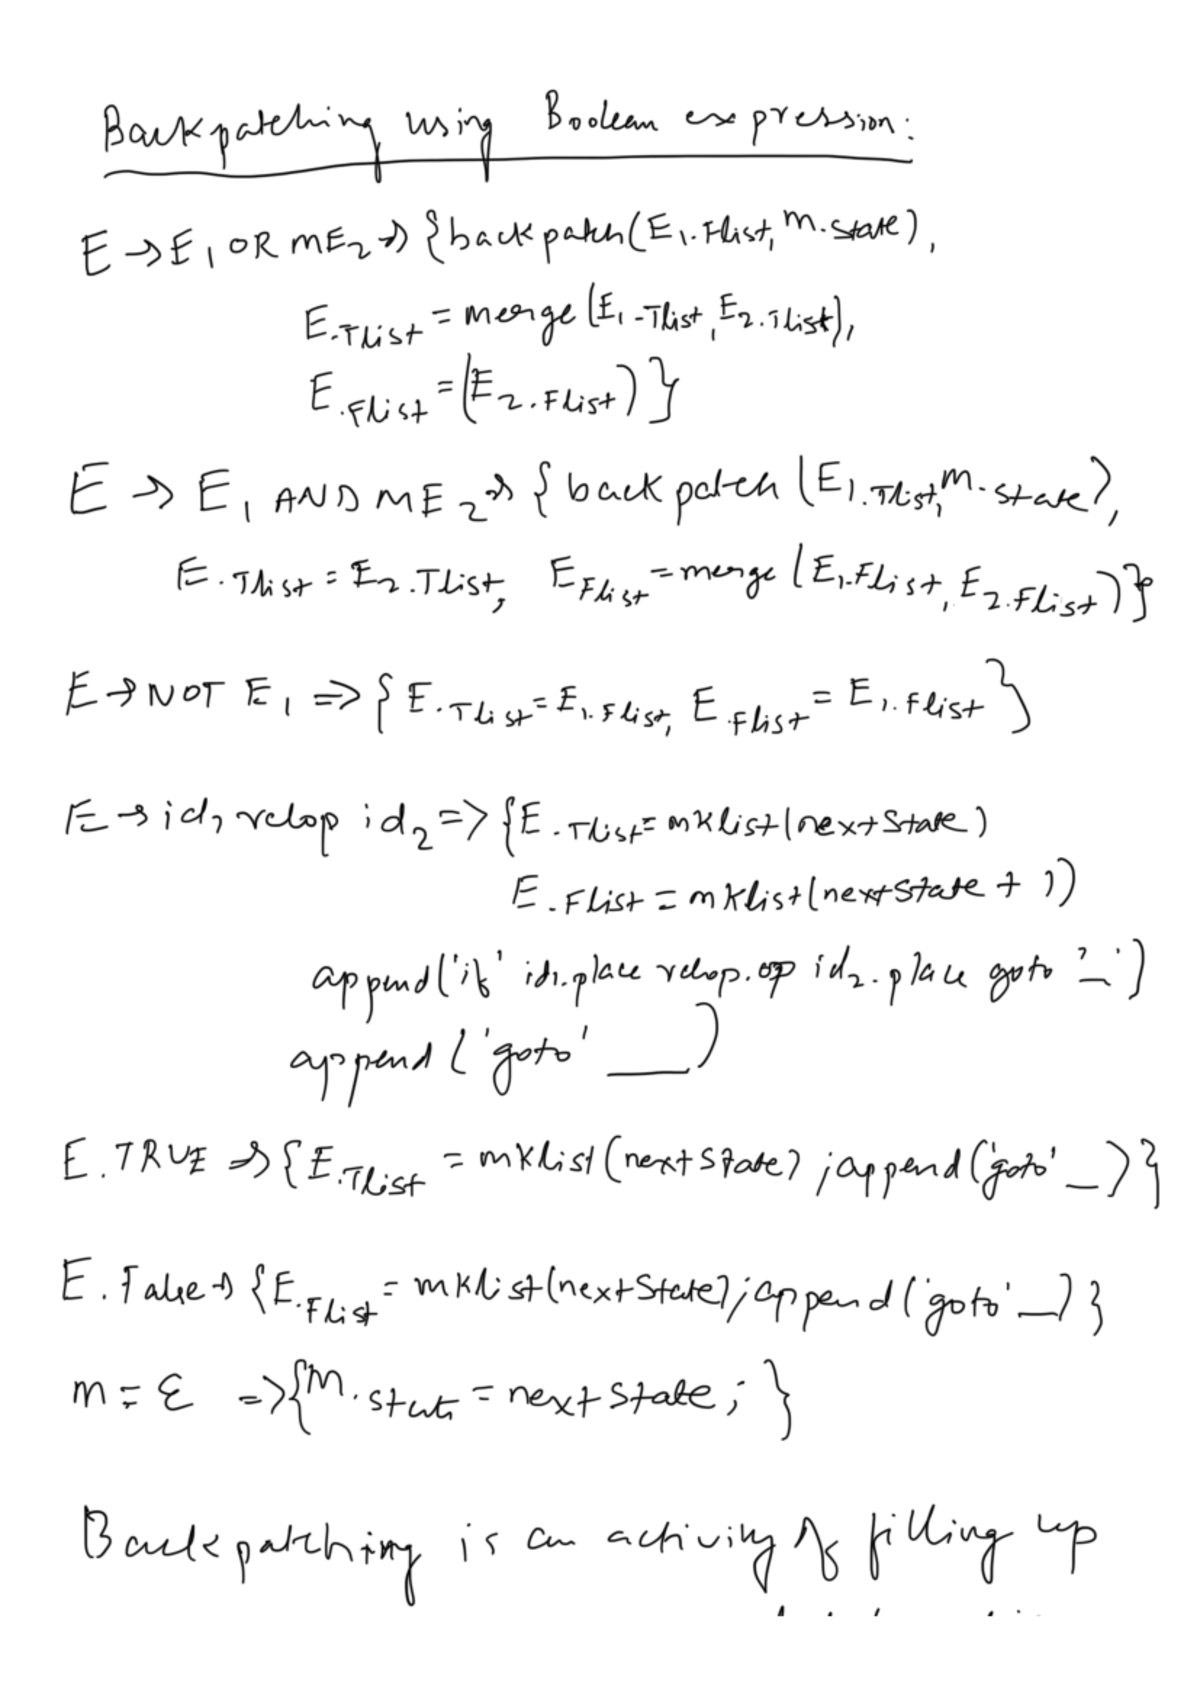 Backpatching using Boolean expression:
E → E₁ OR mE₂ → {backpatch(E₁.Flist, m.state),
E.Tlist = merge(E₁.Tlist, E₂.Tlist),
E.Flist = (E₂.Flist)}
E → E₁ AND ME₂ → {backpatch(E₁.Tlist, m.state),
E.Tlist = E₂.Tlist, E Flist = merge(E₁.Flist, E₂.Flist)}
E → NOT E₁ => {E.Tlist = E₁.Flist, E.Flist = E₁.Flist}
E → id₁ relop id₂ => {E.Tlist = mklist(nextState)
E.Flist = mklist(nextState + 1)
append('if' id₁.place relop.op id₂.place goto '_')
append('goto' ___)
E.TRUE → {E.Tlist = mklist(nextState); append('goto' _)}
E.False → {E.Flist = mklist(nextState); append('goto' _)}
m = ε => {M.state = nextState;}
Backpatching is an activity of filling up